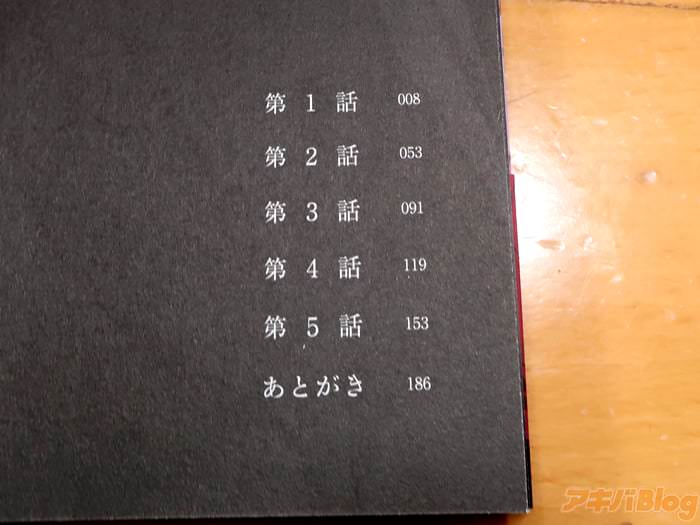 第1話 008
第2話 053
第3話 091
第4話 119
第5話 153
あとがき 186
アキバBlog